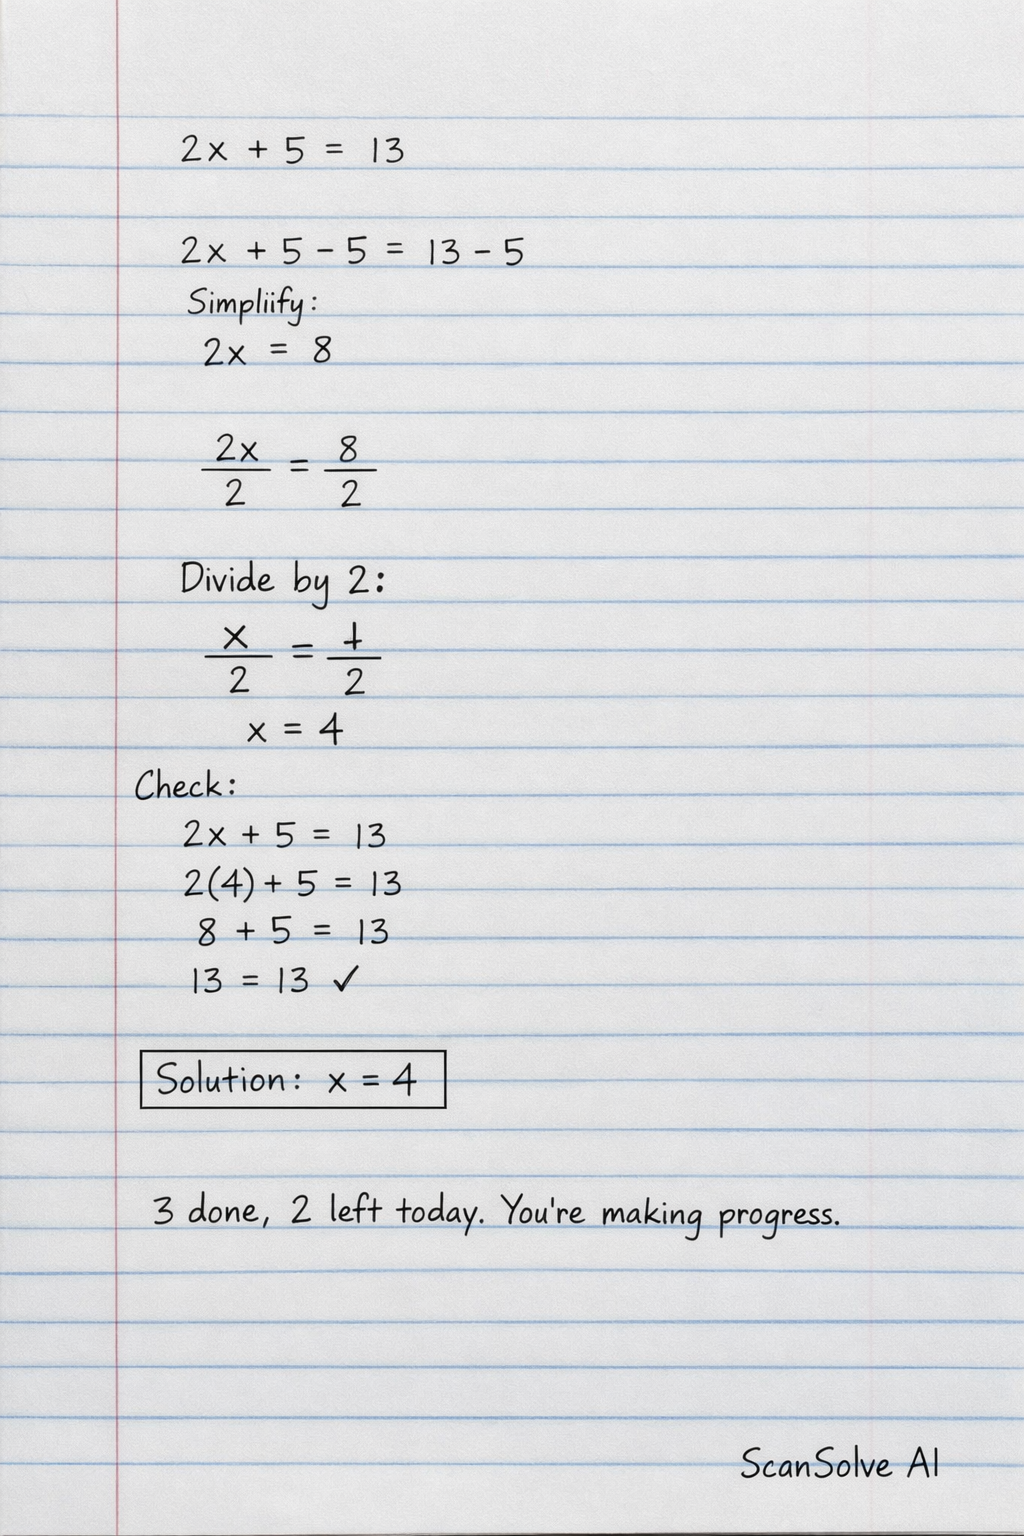 2x + 5 = 13
2x + 5 - 5 = 13 - 5
Simpliify:
2x = 8
2x/2 = 8/2
Divide by 2:
x/2 = /2
x = 4
Check:
2x + 5 = 13
2(4) + 5 = 13
8 + 5 = 13
13 = 13 ✓
Solution: x = 4
3 done, 2 left today. You're making progress.
ScanSolve AI